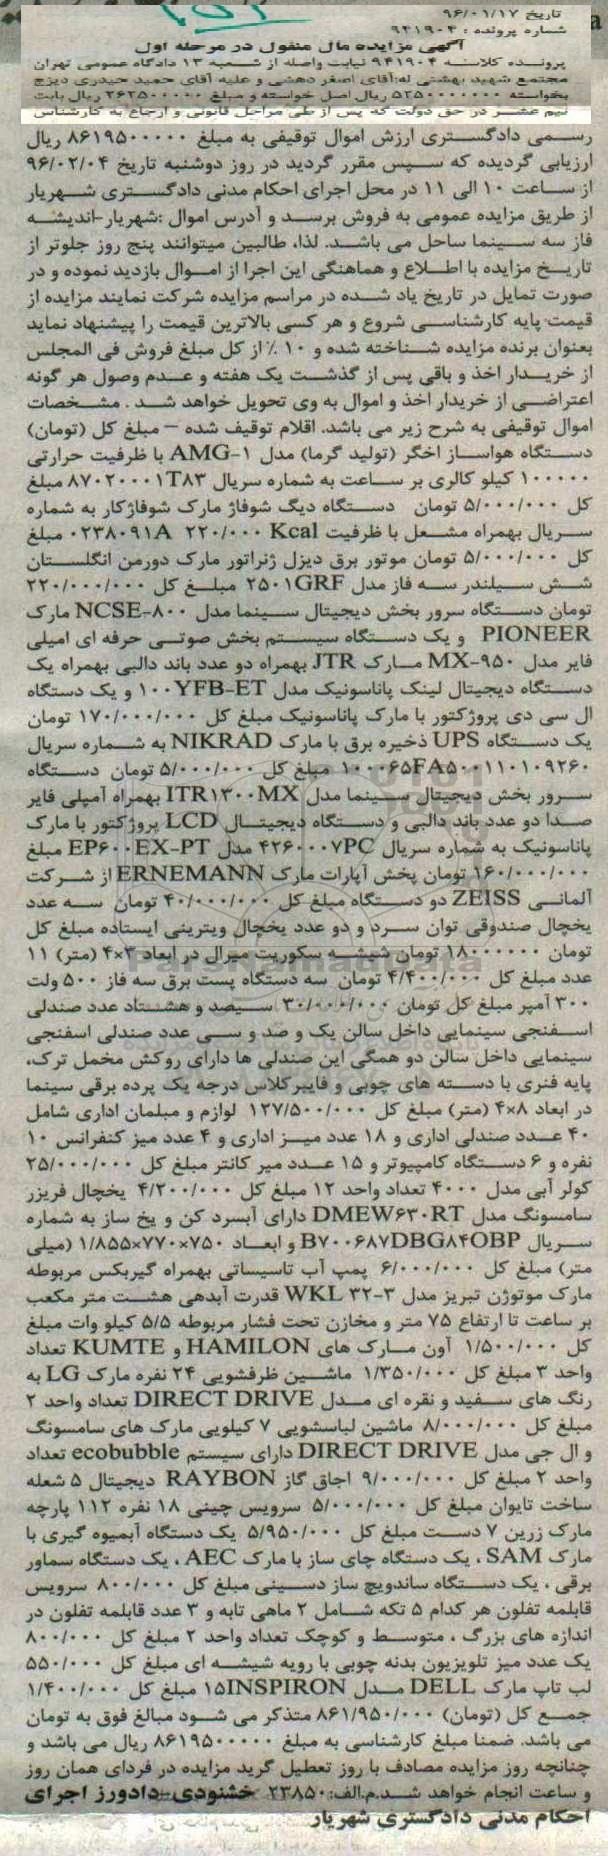 تاریخ ۹۶/۰۱/۱۷
شماره پرونده : ۹۴۱۹۰۴
آگهی مزایده مال منقول در مرحله اول
پرونده کلاسه ۹۴۱۹۰۴ نیابت واصله از شعبه ۱۳ دادگاه عمومی تهران
مجتمع شهید بهشتی له:آقای اصغر دهشی و علیه آقای حمید حیدری دیزج
بخواسته ۵۲۵۰۰۰۰۰۰۰ ریال اصل خواسته و مبلغ ۲۶۲۵۰۰۰۰۰ ریال بابت
نیم عشر در حق دولت که پس از طی مراحل قانونی و ارجاع به کارشناس
رسمی دادگستری ارزش اموال توقیفی به مبلغ ۸۶۱۹۵۰۰۰۰۰ ریال
ارزیابی گردیده که سپس مقرر گردید در روز دوشنبه تاریخ ۹۶/۰۲/۰۴
از ساعت ۱۰ الی ۱۱ در محل اجرای احکام مدنی دادگستری شهریار
از طریق مزایده عمومی به فروش برسد و آدرس اموال :شهریار-اندیشه
فاز سه سینما ساحل می باشد. لذا، طالبین میتوانند پنج روز جلوتر از
تاریخ مزایده با اطلاع و هماهنگی این اجرا از اموال بازدید نموده و در
صورت تمایل در تاریخ یاد شده در مراسم مزایده شرکت نمایند مزایده از
قیمت پایه کارشناسی شروع و هر کسی بالاترین قیمت را پیشنهاد نماید
بعنوان برنده مزایده شناخته شده و ۱۰ ٪ از کل مبلغ فروش فی المجلس
از خریدار اخذ و باقی پس از گذشت یک هفته و عدم وصول هر گونه
اعتراضی از خریدار اخذ و اموال به وی تحویل خواهد شد . مشخصات
اموال توقیفی به شرح زیر می باشد. اقلام توقیف شده – مبلغ کل (تومان)
دستگاه هواساز اخگر (تولید گرما) مدل AMG-۱ با ظرفیت حرارتی
۱۰۰۰۰۰ کیلو کالری بر ساعت به شماره سریال ۸۷۰۲۰۰۰۱T۸۳ مبلغ
کل ۵/۰۰۰/۰۰۰ تومان دستگاه دیگ شوفاژ مارک شوفاژکار به شماره
سریال بهمراه مشعل با ظرفیت ۰۲۳۸۰۹۱A ۲۲۰/۰۰۰ Kcal مبلغ
کل ۵/۰۰۰/۰۰۰ تومان موتور برق دیزل ژنراتور مارک دورمن انگلستان
شش سیلندر سه فاز مدل ۲۵۰۱GRF مبلغ کل ۲۲۰/۰۰۰/۰۰۰
تومان دستگاه سرور بخش دیجیتال سینما مدل NCSE-۸۰۰ مارک
PIONEER و یک دستگاه سیستم بخش صوتی حرفه ای امپلی
فایر مدل MX-۹۵۰ مارک JTR بهمراه دو عدد باند دالبی بهمراه یک
دستگاه دیجیتال لینک پاناسونیک مدل ۱۰۰YFB-ET و یک دستگاه
ال سی دی پروژکتور با مارک پاناسونیک مبلغ کل ۱۷۰/۰۰۰/۰۰۰ تومان
یک دستگاه UPS ذخیره برق با مارک NIKRAD به شماره سریال
۱۰۰۰۶۵FA۵۰۰۱۱۰۱۰۹۲۶۰ مبلغ کل ۵/۰۰۰/۰۰۰ تومان دستگاه
سرور بخش دیجیتال سینما مدل ITR۱۳۰۰MX بهمراه آمپلی فایر
صدا دو عدد باند دالبی و دستگاه دیجیتال LCD پروژکتور با مارک
پاناسونیک به شماره سریال ۴۲۶۰۰۰۷PC مدل EP۶۰۰EX-PT مبلغ
۱۶۰/۰۰۰/۰۰۰ تومان پخش آپارات مارک ERNEMANN از شرکت
آلمانی ZEISS دو دستگاه مبلغ کل ۴۰/۰۰۰/۰۰۰ تومان سه عدد
یخچال صندوقی توان سرد و دو عدد یخچال ویترینی ایستاده مبلغ کل
تومان ۱۸۰۰۰۰۰۰ تومان شیشه سکوریت میرال در ابعاد ۳×۴ (متر) ۱۱
عدد مبلغ کل ۴/۴۰۰/۰۰۰ تومان سه دستگاه پست برق سه فاز ۵۰۰ ولت
۳۰۰ آمپر مبلغ کل تومان ۳۰/۰۰۰/۰۰۰ سیصد و هشتاد عدد صندلی
اسفنجی سینمایی داخل سالن یک و صد و سی عدد صندلی اسفنجی
سینمایی داخل سالن دو همگی این صندلی ها دارای روکش مخمل ترک،
پایه فنری با دسته های چوبی و فایبرکلاس درجه یک پرده برقی سینما
در ابعاد ۸×۴ (متر) مبلغ کل ۱۲۷/۵۰۰/۰۰۰ لوازم و مبلمان اداری شامل
۴۰ عدد صندلی اداری و ۱۸ عدد میز اداری و ۴ عدد میز کنفرانس ۱۰
نفره و ۶ دستگاه کامپیوتر و ۱۵ عدد میر کانتر مبلغ کل ۲۵/۰۰۰/۰۰۰
کولر آبی مدل ۴۰۰۰ تعداد واحد ۱۲ مبلغ کل ۴/۲۰۰/۰۰۰ یخچال فریزر
سامسونگ مدل DMEW۶۳۰RT دارای آبسرد کن و یخ ساز به شماره
سریال B۷۰۰۶۸۷DBG۸۴OBP و ابعاد ۷۵۰×۷۷۰×۱/۸۵۵ (میلی
متر) مبلغ کل ۶/۰۰۰/۰۰۰ پمپ آب تاسیساتی بهمراه گیربکس مربوطه
مارک موتوژن تبریز مدل WKL ۳۲-۳ قدرت آبدهی هشت متر مکعب
بر ساعت تا ارتفاع ۷۵ متر و مخازن تحت فشار مربوطه ۵/۵ کیلو وات مبلغ
کل ۱/۵۰۰/۰۰۰ آون مارک های HAMILON و KUMTE تعداد
واحد ۳ مبلغ کل ۱/۳۵۰/۰۰۰ ماشین ظرفشویی ۲۴ نفره مارک LG به
رنگ های سفید و نقره ای مدل DIRECT DRIVE تعداد واحد ۲
مبلغ کل ۸/۰۰۰/۰۰۰ ماشین لباسشویی ۷ کیلویی مارک های سامسونگ
و ال جی مدل DIRECT DRIVE دارای سیستم ecobubble تعداد
واحد ۲ مبلغ کل ۹/۰۰۰/۰۰۰ اجاق گاز RAYBON دیجیتال ۵ شعله
ساخت تایوان مبلغ کل ۵/۰۰۰/۰۰۰ سرویس چینی ۱۸ نفره ۱۱۲ پارچه
مارک زرین ۷ دست مبلغ کل ۵/۹۵۰/۰۰۰ یک دستگاه آبمیوه گیری با
مارک SAM ، یک دستگاه چای ساز با مارک AEC ، یک دستگاه سماور
برقی ، یک دستگاه ساندویچ ساز دسینی مبلغ کل ۸۰۰/۰۰۰ سرویس
قابلمه تفلون هر کدام ۵ تکه شامل ۲ ماهی تابه و ۳ عدد قابلمه تفلون در
اندازه های بزرگ ، متوسط و کوچک تعداد واحد ۲ مبلغ کل ۸۰۰/۰۰۰
یک عدد میز تلویزیون بدنه چوبی با رویه شیشه ای مبلغ کل ۵۵۰/۰۰۰
لب تاپ مارک DELL مدل ۱۵INSPIRON مبلغ کل ۱/۴۰۰/۰۰۰
جمع کل (تومان) ۸۶۱/۹۵۰/۰۰۰ متذکر می شود مبالغ فوق به تومان
می باشد. ضمنا مبلغ کارشناسی به مبلغ ۸۶۱۹۵۰۰۰۰۰ ریال می باشد و
چنانچه روز مزایده مصادف با روز تعطیل گرید مزایده در فردای همان روز
و ساعت انجام خواهد شد.م.الف:۲۳۸۵۰ خشنودی-دادورز اجرای
احکام مدنی دادگستری شهریار